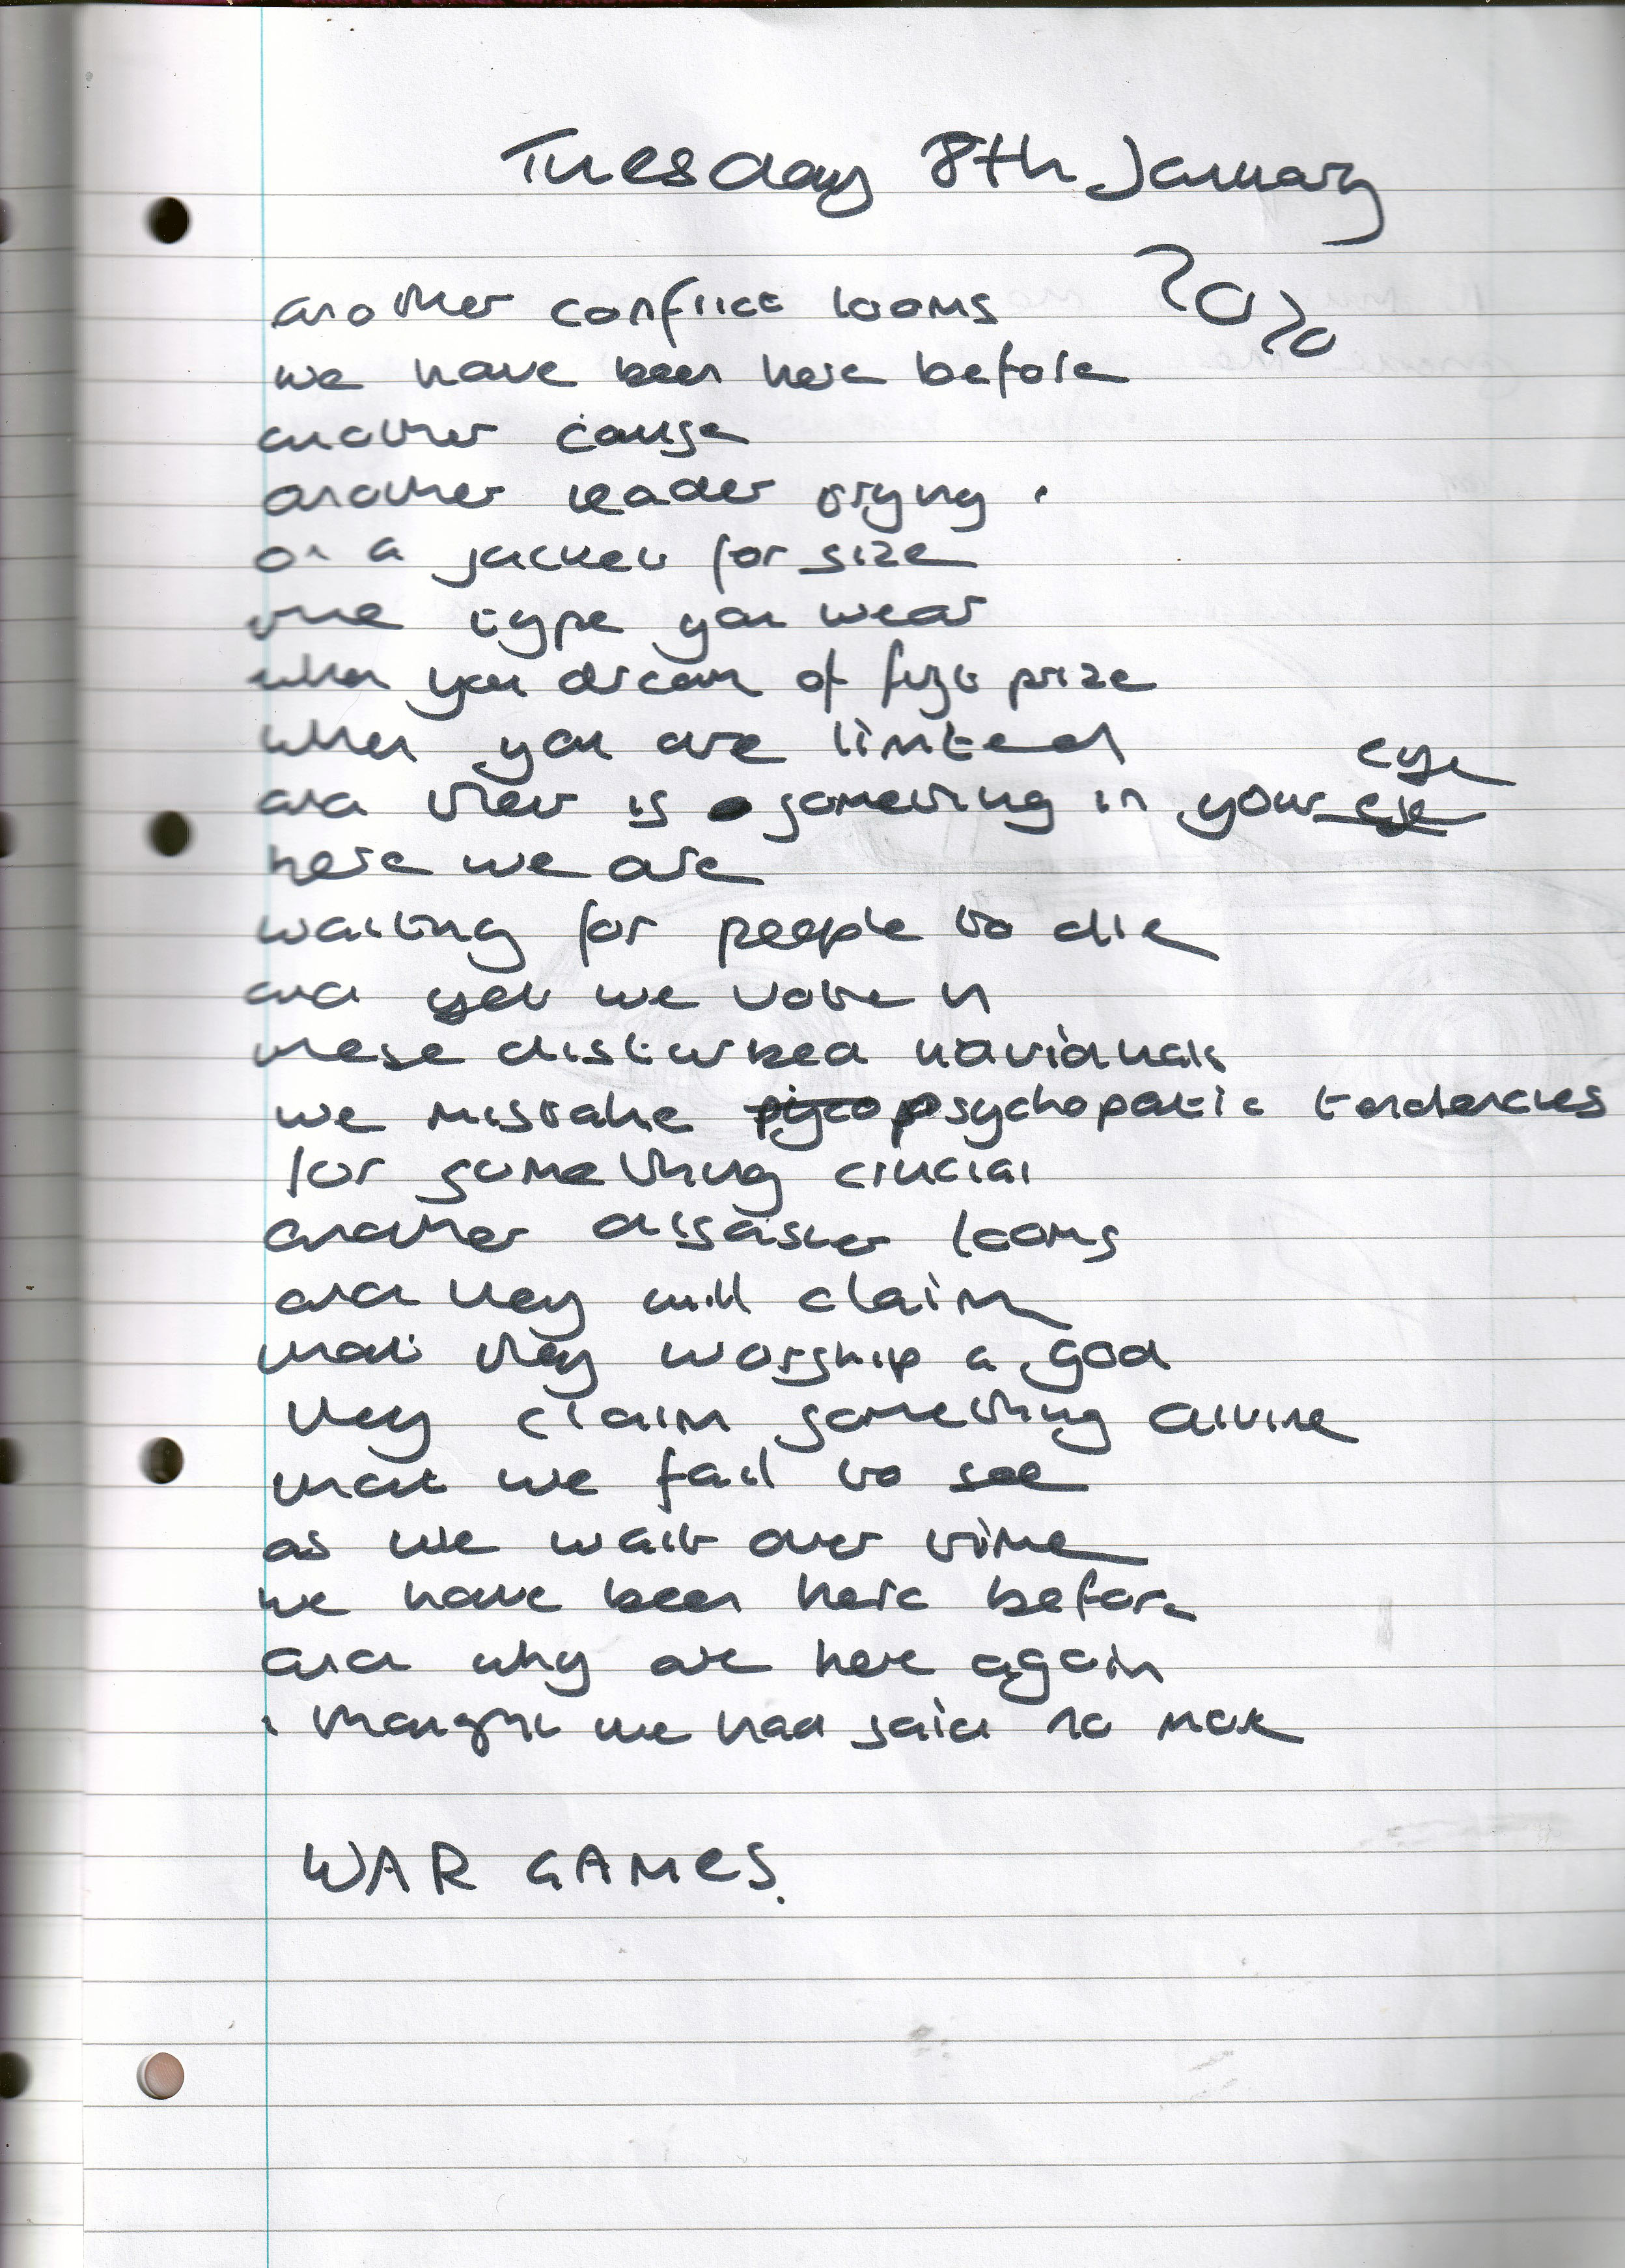 Tuesday 8th January
2020
another conflict looms
we have been here before
another cause
another leader trying
on a jacket for size
the type you wear
when you dream of first prize
when you are limited
and their is something in your eye
here we are
waiting for people to die
and yet we vote in
these disturbed individuals
we mistake psychopatic tendencies
for something crucial
another dissaster looms
and they will claim
that they worship a god
they claim something divine
that we fail to see
as we wait over time
we have been here before
and why are here again
i thought we had said no more
WAR GAMES.